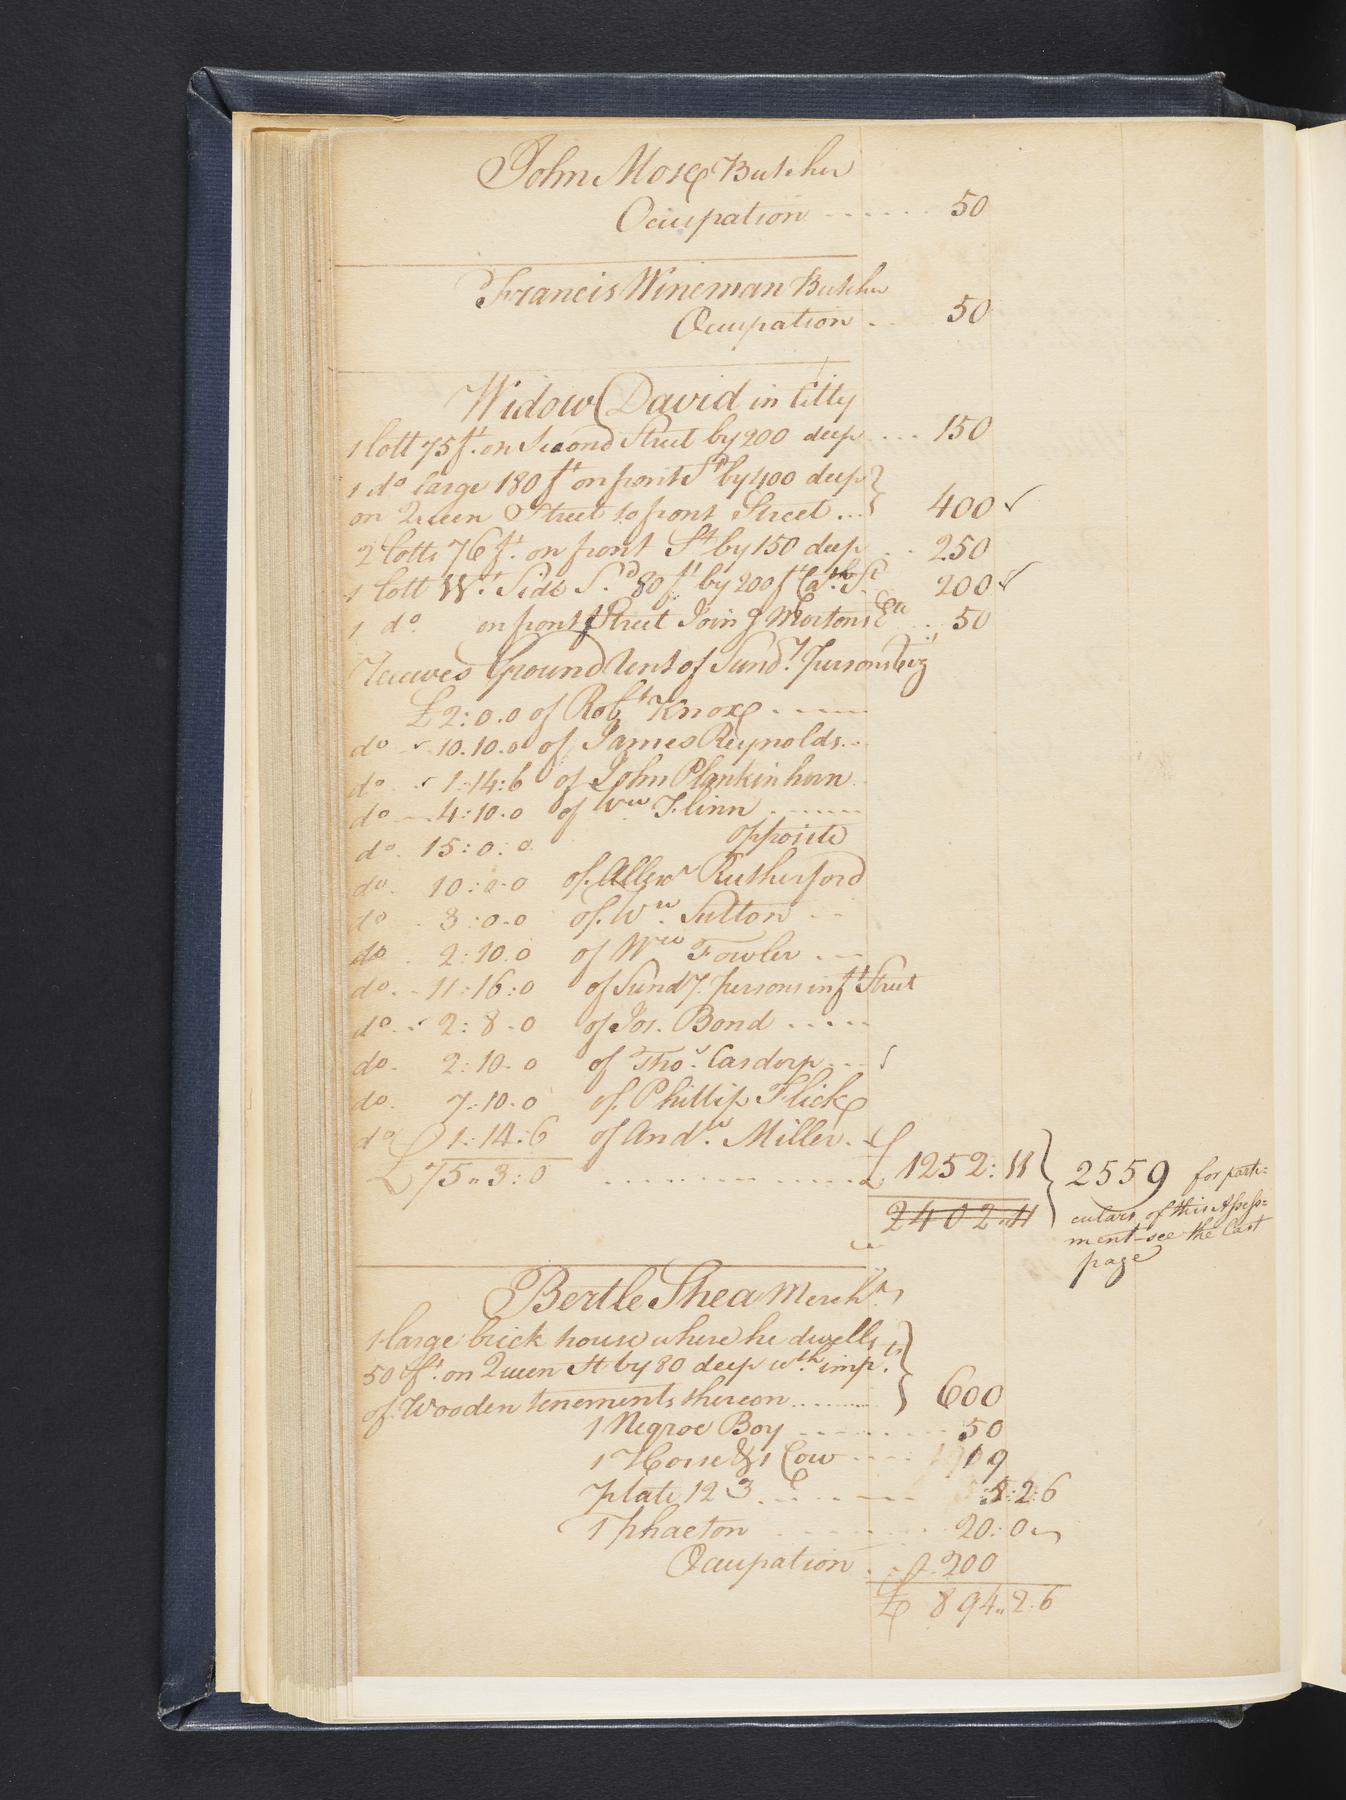 John Mose Butcher
Ocupation ...... 50
Francis Wineman Butcher
Ocupation .. 50
Widow David in Citty
1 lott 75 ft. on Second Street by 200 deep ... 150
1 do large 180 ft on front St by 400 deep }
on Queen Street to front Street ... } 400 ✓
2 lotts 76 ft. on front St by 150 deep .. 250
1 lott Wt. Side S.d 80 ft by 200 ft 200 ✓
1 do. on front Street Join g Mortons Ea .. 50
Receives Ground Rent of Sundy. persons viz
£2:0.0 of Robt Knox .....
do ✓ 10.10.0 of James Reynolds..
do . ✓ 1:14:6 of John Plankinhorn
do ... 4:10.0 of Wm Flinn .......
opposite
do. 15:0:0
do. 10:0.0 of Allexr Rutherford
do . 3:0.0 of Wm. Sutton ...
do . 2:10.0 of Wm Fowler ...
do. .. 11:16:0 of Sundy. persons in ft Street
do. ✓ 2:8.0 of Jos. Bond .....
do. 2:10.0 of Thos. Casdorp ...
do. 7:10.0 of Phillip Flick
do 1:14:6 of Andw. Miller.
£75„3:0 ............ £ 1252:11 } 2559 for parti=
2402„11 culars of this Assess=
ment-see the last
page
Bertle Shea Mercht.
1 large brick house where he dwells }
50 ft. on Queen St by 80 deep wth impts. }
of Wooden tenements thereon........ } 600
1 Negroe Boy ........ 50
1 Horse & 1 Cow .... 19
plate 12 3 ...... 5:2:6
1 phaeton ...... 20:0
Ocupation . . 200
£ 894„2.6